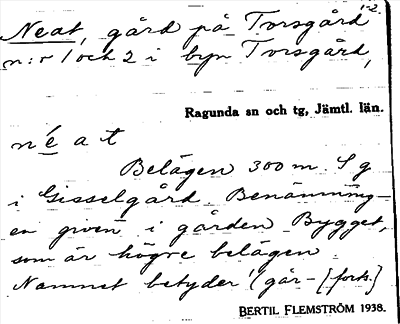 1-2.
Neat, gård på Torsgård
n:r 1 och 2 i byn Torsgård,
Ragunda sn och tg, Jämtl. län.
n é a t
Belägen 300 m S g
i Gisselgård. Benämning-
en given i gården Bygget,
som är högre belägen.
Namnet betyder '(går- [forts.]
BERTIL FLEMSTRÖM 1938.